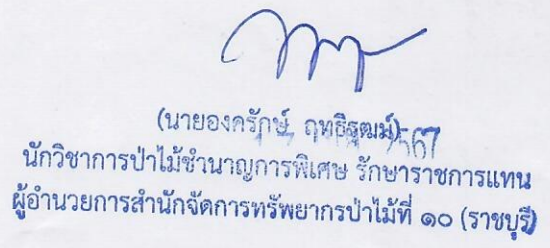 (นายองครักษ์ ฤทธิฐุฒม์)
2567
นักวิชาการป่าไม้ชำนาญการพิเศษ รักษาราชการแทน
ผู้อำนวยการสำนักจัดการทรัพยากรป่าไม้ที่ ๑๐ (ราชบุรี)